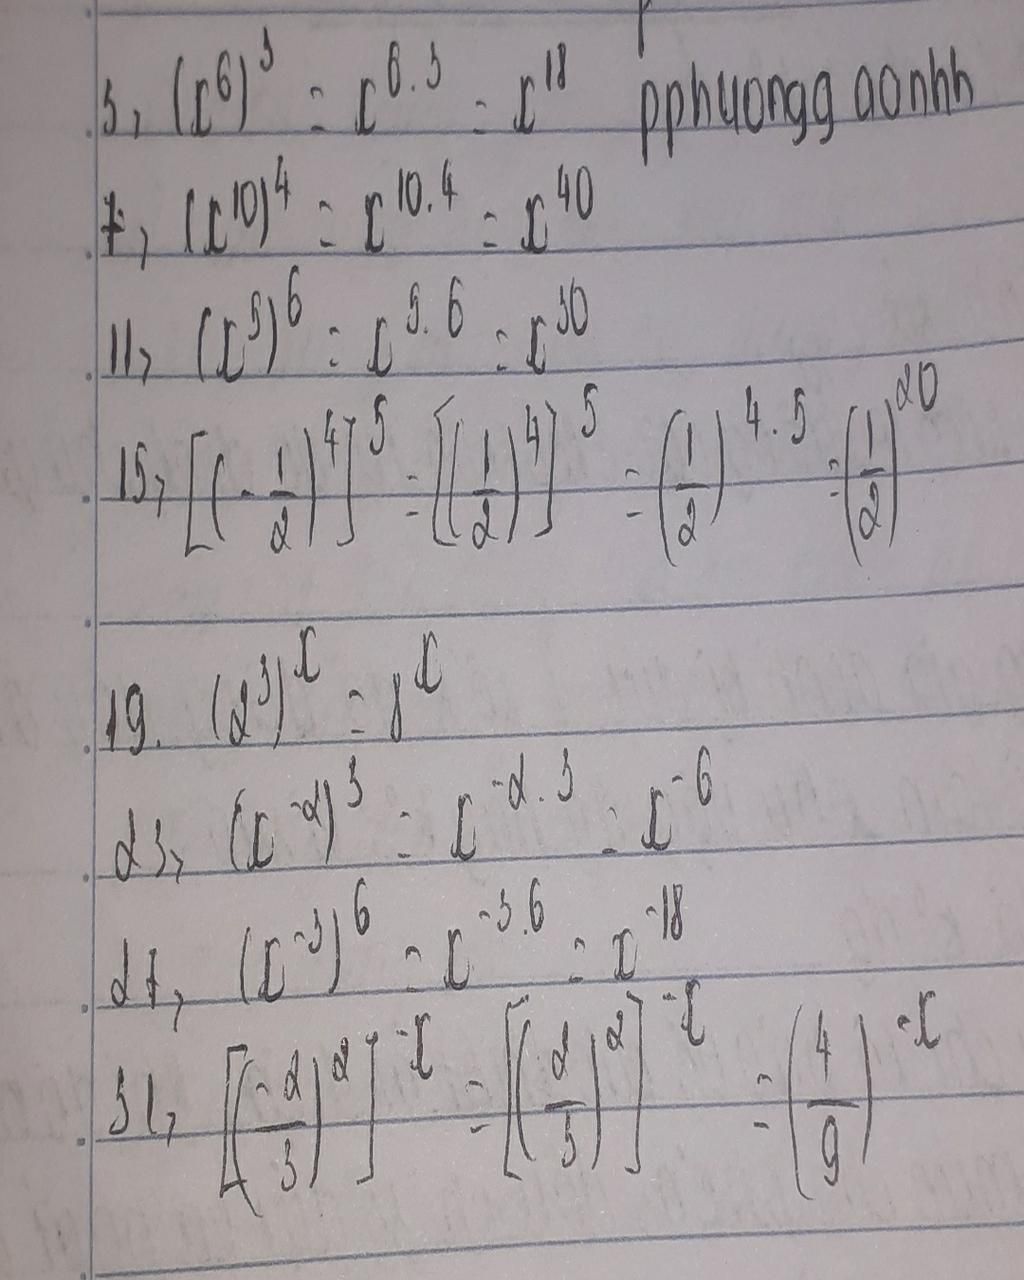 3, (x^6)^3 = x^{6.3} = x^{18} pphuongg aonhh
7, (x^{10})^4 = x^{10.4} = x^{40}
11, (x^5)^6 = x^{5.6} = x^{30}
15, [(-1/2)^4]^5 = [(1/2)^4]^5 = (1/2)^{4.5} = (1/2)^{20}
19. (2^3)^x = 8^x
23, (x^{-2})^3 = x^{-2.3} = x^{-6}
27, (x^{-3})^6 = x^{-3.6} = x^{-18}
31, [(-2/3)^2]^{-x} = [(2/3)^2]^{-x} = (4/9)^{-x}